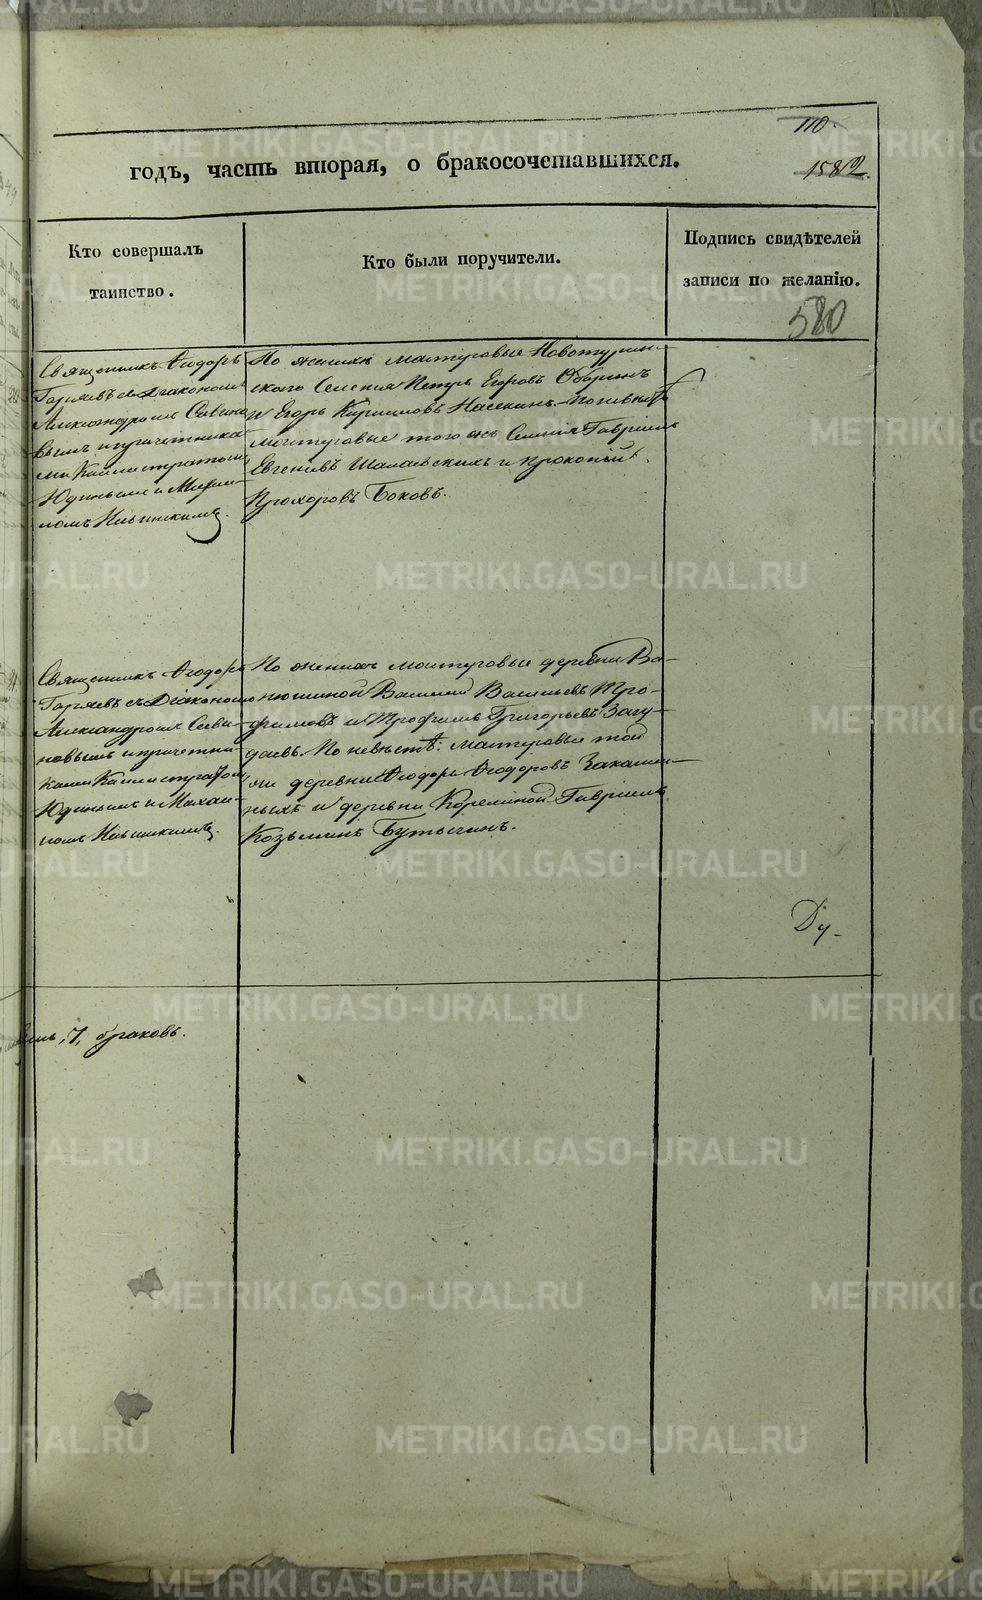 110.
годъ, часть вторая, о бракосочетавшихся.
1582.
Кто совершалъ
таинство.
Кто были поручители.
Подпись свидѣтелей
записи по желанію.
580
Священникъ Ѳеодоръ
съ Діакономъ
Александромъ
вымъ и причетника
ми Каллистратомъ
Юдинымъ и Михаи
ломъ
По женихѣ мастеровые Новотурин-
скаго Селенія Петръ Егоровъ Оборинъ
и Егоръ Кириловъ По невѣстѣ
мастеровые того же Селенія Гавріилъ
Евгеніевъ и Прокопій
Прохоровъ Боковъ.
Священникъ Ѳеодоръ
съ Діакономъ
Александромъ Сави
новымъ и причетни
ками Каллистратомъ
Юдинымъ и Михаи
ломъ
По женихѣ мастеровые деревни Ва-
нюшиной Василій Васильевъ Тро-
фимовъ и Трофимъ Григорьевъ Загу-
даевъ. По невѣстѣ: мастеровые той
же деревни Ѳеодоръ Ѳеодоровъ Закамен-
ныхъ и деревни Корелиной Гавріилъ
Козьминъ
Ду-
7, браковъ.
METRIKI.GASO-URAL.RU